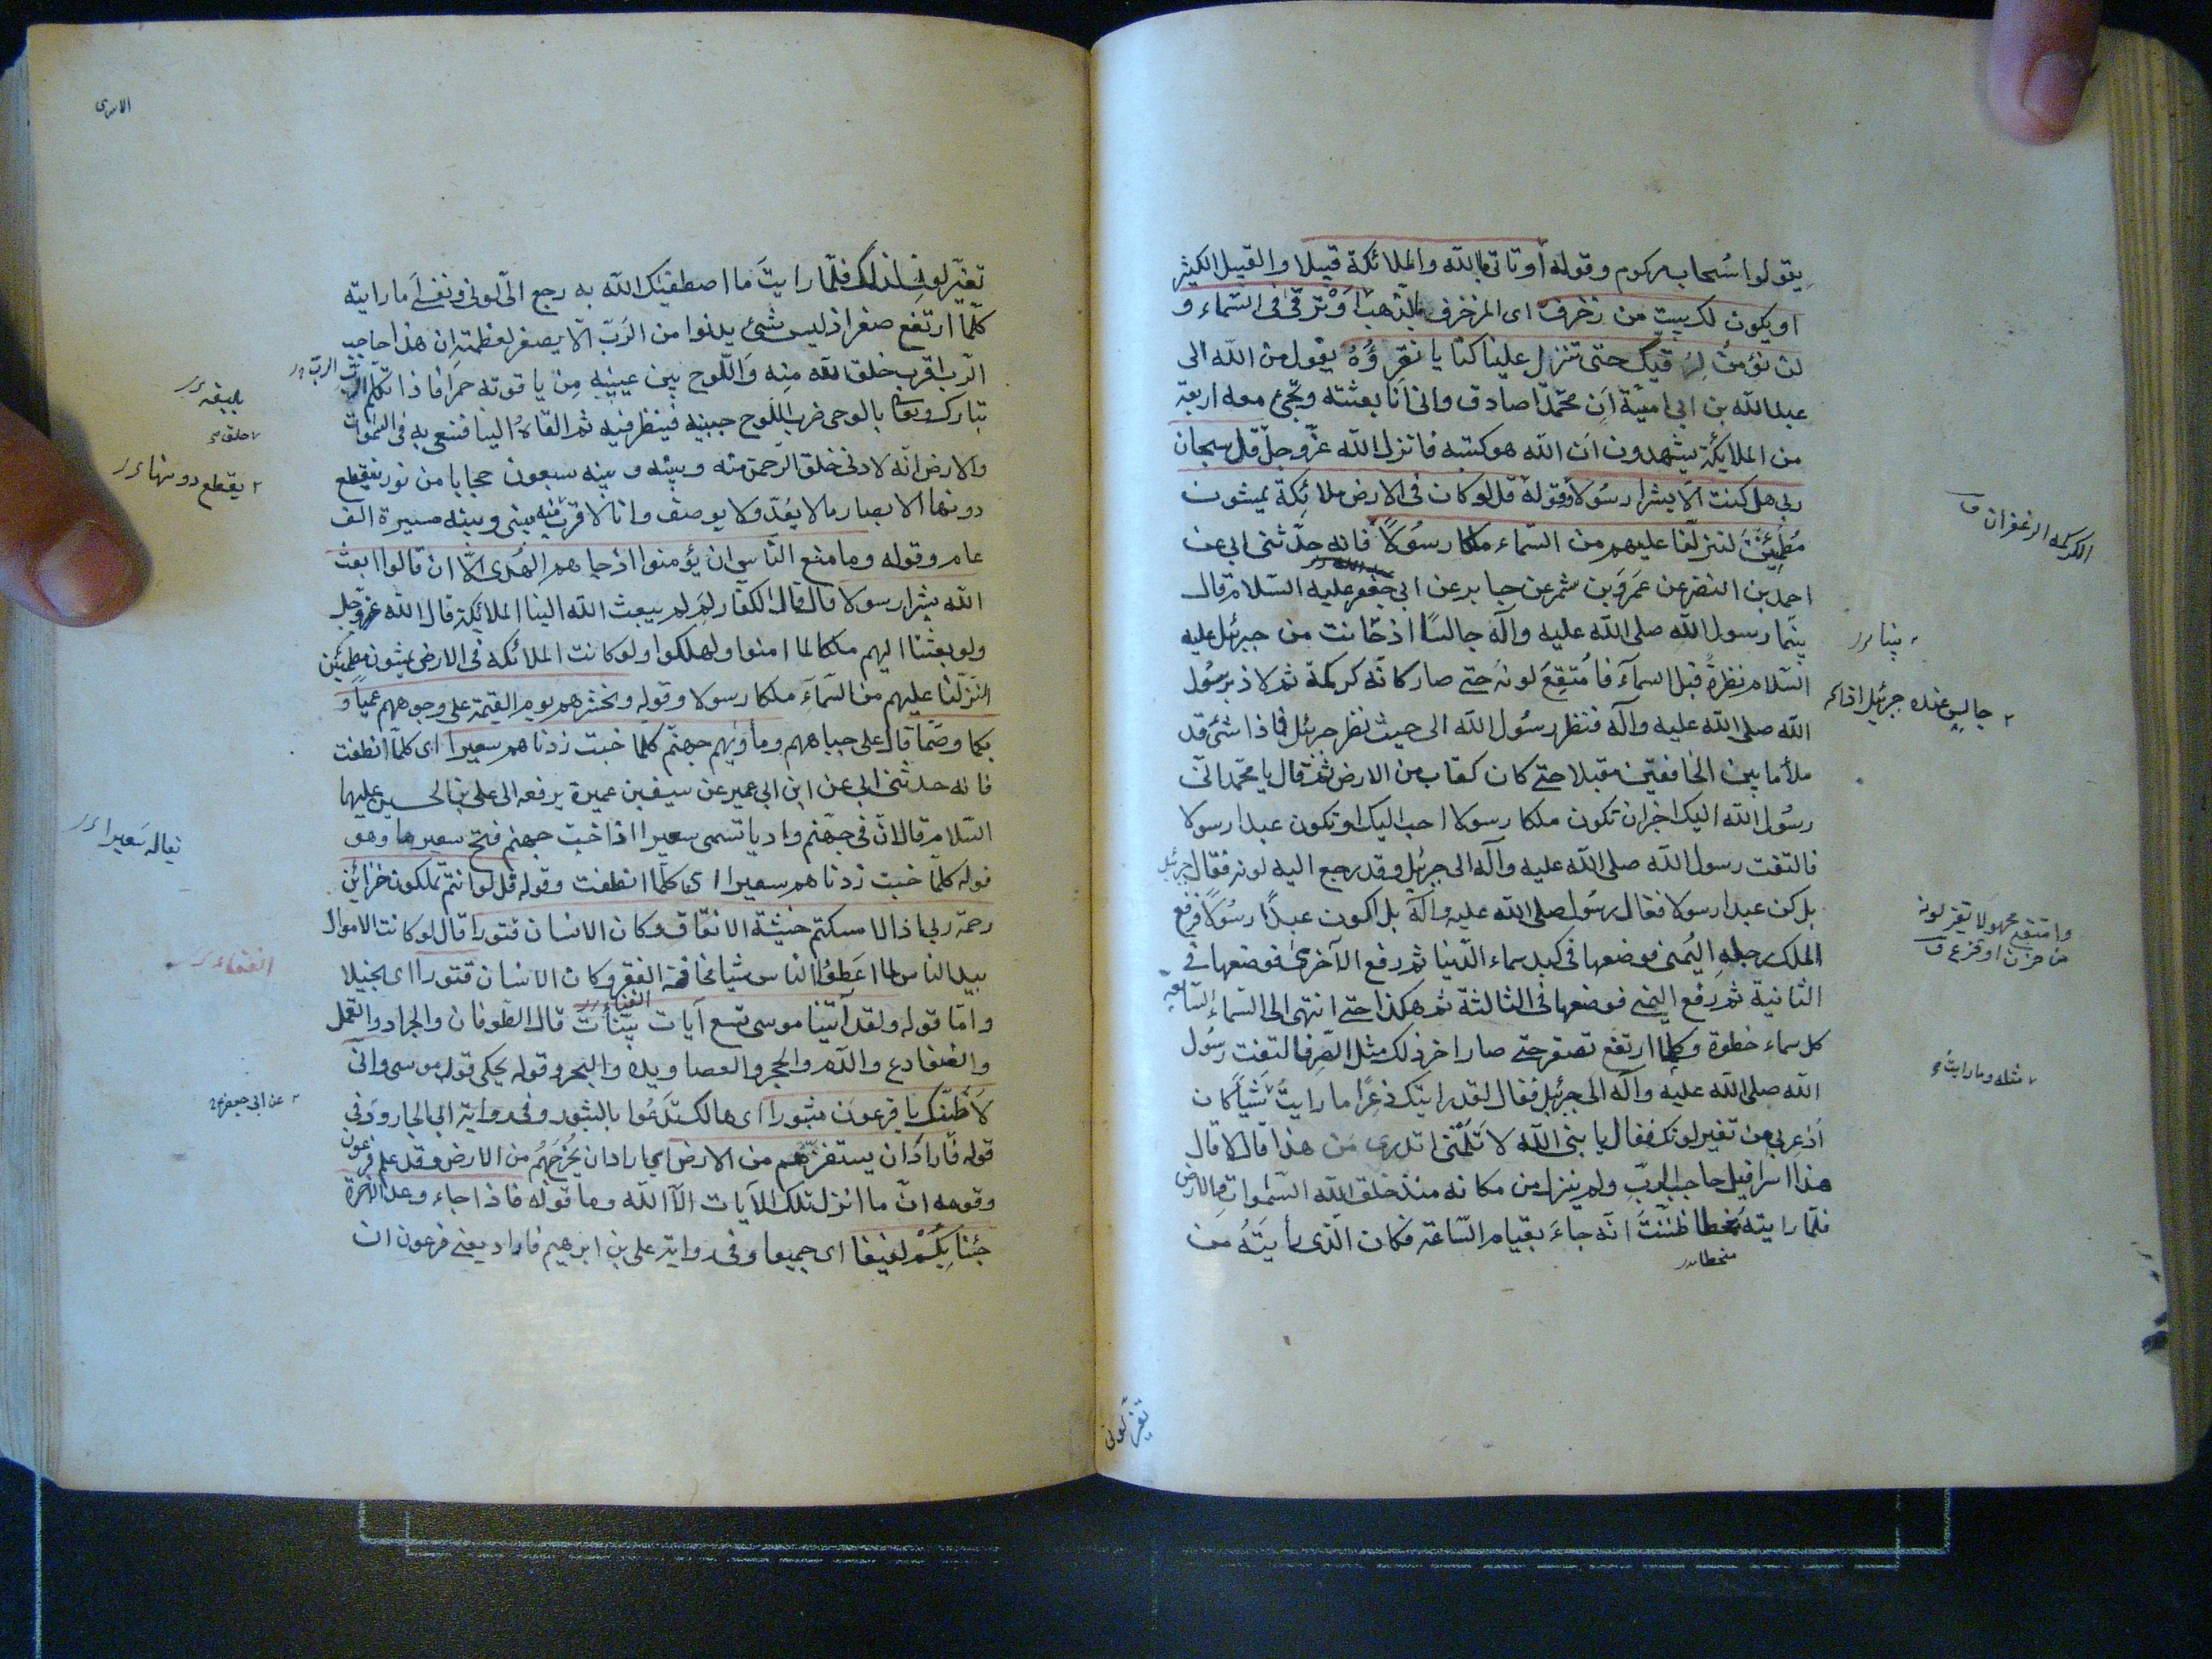 يقولوا سُحاب مركوم وقوله او تاتى بالله والملائكة قبيلا والقبيل الكثير
او يكون لك بيت من زخرف اى المزخرف بالذهب او ترقى فى السماء و
لن نؤمن لرقيك حتى تنزل علينا كتابا نقرؤه يقول من الله الى
عبد الله بن ابى امية ان محمدا صادق وانى انا بعثته ويجئ معه اربعة
من الملائكة يشهدون ان الله هو كتبه فانزل الله عز وجل قل سبحان
ربى هل كنت الا بشرا رسولا وقوله قل لو كان فى الارض ملائكة يمشون
مطمئنين لنزلنا عليهم من السماء ملكا رسولا فانه حدثنى ابى عن
احمد بن النضر عن عمرو بن شمر عن جابر عن ابى جعفر عليه السلام قال
بينما رسول الله صلى الله عليه وآله جالسا اذ حانت من جبرئيل عليه
السلام نظرة قبل السمآء فامتقع لونه حتى صار كانه كركمة ثم لاذ برسول
الله صلى الله عليه وآله فنظر رسول الله الى حيث نظر جبرئيل فاذا شئ قد
ملأ ما بين الخافقين مقبلا حتى كان كقاب من الارض ثم قال يا محمد انى
رسول الله اليك اخبرك ان تكون ملكا رسولا احب اليك او تكون عبدا رسولا
فالتفت رسول الله صلى الله عليه وآله الى جبرئيل وقد رجع اليه لونه فقال جبرئيل
بل كن عبدا رسولا فقال رسول صلى الله عليه وآله بل اكون عبدا رسولا فرفع
الملك رجله اليمنى فوضعها فى كبد سماء الدنيا ثم رفع الاخرى فوضعها فى
الثانية ثم رفع اليمنى فوضعها فى الثالثة ثم هكذا حتى انتهى الى السماء السابعة
كل سماء خطوة وكلما ارتفع تصغر حتى صار اخر ذلك مثل الصر فالتفت رسول
الله صلى الله عليه وآله الى جبرئيل فقال لقد رايتك ذعرا ما رايت شيئا كان
اذعر بى من تغير لونك فقال يا نبى الله لا تلمنى اتدرى من هذا قال لا قال
هذا اسرافيل حاجب الرب ولم ينزل من مكانه منذ خلق الله السموات والارض
فلما رايته منحطا ظننت انه جاء بقيام الساعة فكان الذى رأيته من
منحطا
الكركمة الزعفران ق
بينا
جالس عنده جبرئيل اذا
وامتقع مجهولا تغير لونه
من حزن او فزع ق
مثله وما رايت
تغير لونى
الاسرى
تغير لونى لذلك فلما رايت ما اصطفيك الله به رجع الى لونى ونفسى اما رايته
كلما ارتفع صغر اذ ليس شئ يدنوا من الرب الا يصغر لعظمته ان هذا حاجب
الرب اقرب خلق الله منه واللوح بين عينيه من ياقوته حمرا فاذا تكلم الرب
تبارك وتعالى بالوحى ضرب اللوح جبينه فينظر فيه ثم القاه الينا فنسعى به فى السموات
والارض انه لادنى خلق الرحمن منه وبينه و بينه سبعون حجابا من نور يقطع
دونها الابصار ما لا يعد ولا يوصف وانا لاقرب منه بينى وبينه مسيرة الف
عام وقوله وما منع الناس ان يؤمنوا اذ جاهم الهدى الا ان قالوا ابعث
الله بشرا رسولا قال قال الكفار لم لم يبعث الله الينا الملائكة قال الله عز وجل
ولو بعثنا اليهم ملكا لما امنوا ولهلكوا ولو كانت الملائكة فى الارض يمشون مطمئنين
لنزلنا عليهم من السمآء ملكا رسولا وقوله ونحشرهم يوم القيمة على وجوههم عميا و
بكما وصما قال على جباههم ومأويهم جهنم كلما خبت زدناهم سعيرا اى كلما انطفت
فانه حدثنى ابى عن ابن ابى عمير عن سيف بن عميرة يرفعه الى على بن الحسين عليهما
السلام قال ان فى جهنم واديا تسمى سعيرا اذا خبت جهنم فتح سعيرها وهو
قوله كلما خبت زدناهم سعيرا اى كلما انطفت وقوله قل لو انتم تملكون خزائن
رحمة ربى اذا لامسكتم خشية الانفاق وكان الانسان قتورا قال لو كانت الاموال
بيد الناس لما اعطوا الناس شيئا مخافة الفقر وكان الانسان قتورا اى بخيلا
واما قوله ولقد آتينا موسى تسع آيات بينات قال الطوفان والجراد والقمل
والضفادع والدم والحجر والعصا ويده والبحر وقوله يحكى قول موسى وانى
لاظنك يا فرعون مثبورا اى هالك تدعوا بالثبور وفى رواية ابى الجارود فى
قوله فاراد ان يستفزهم من الارض اى اراد ان يخرجهم من الارض وقد علم فرعون
وقومه ان ما انزل تلك الآيات الا الله وما قوله فاذا جاء وعد الآخرة
جئنا بكم لفيفا اى جميعا وفى رواية على بن ابرهيم فاراد يعنى فرعون ان
الرب
خلق
يقطع دونها
يقال له سعيرا
الفناء
عن ابى جعفر